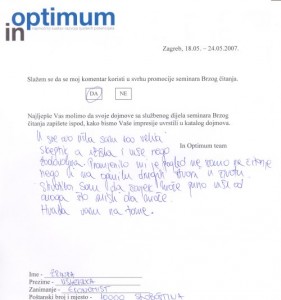 in optimum
Zagreb, 18.05. – 24.05.2007.
Slažem se da se moj komentar koristi u svrhu promocije seminara Brzog čitanja.
DA NE
Najljepše Vas molimo da svoje dojmove sa službenog dijela seminara Brzog
čitanja zapišete ispod, kako bismo Vaše impresije uvrstili u katalog dojmova.
In Optimum team
U sve ovo ušla sam kao velika
skeptik a izašla i više nego
zadovoljna. Promijenilo mi je pogled ne samo na čitanje
nego i na drugih stvari u životu.
Shvatila sam da čovjek može puno više od
onoga što misli da može.
Hvala vam na tome.
Ime -
Prezime -
Zanimanje - EKONOMIST
Poštanski broj i mjesto - 10000